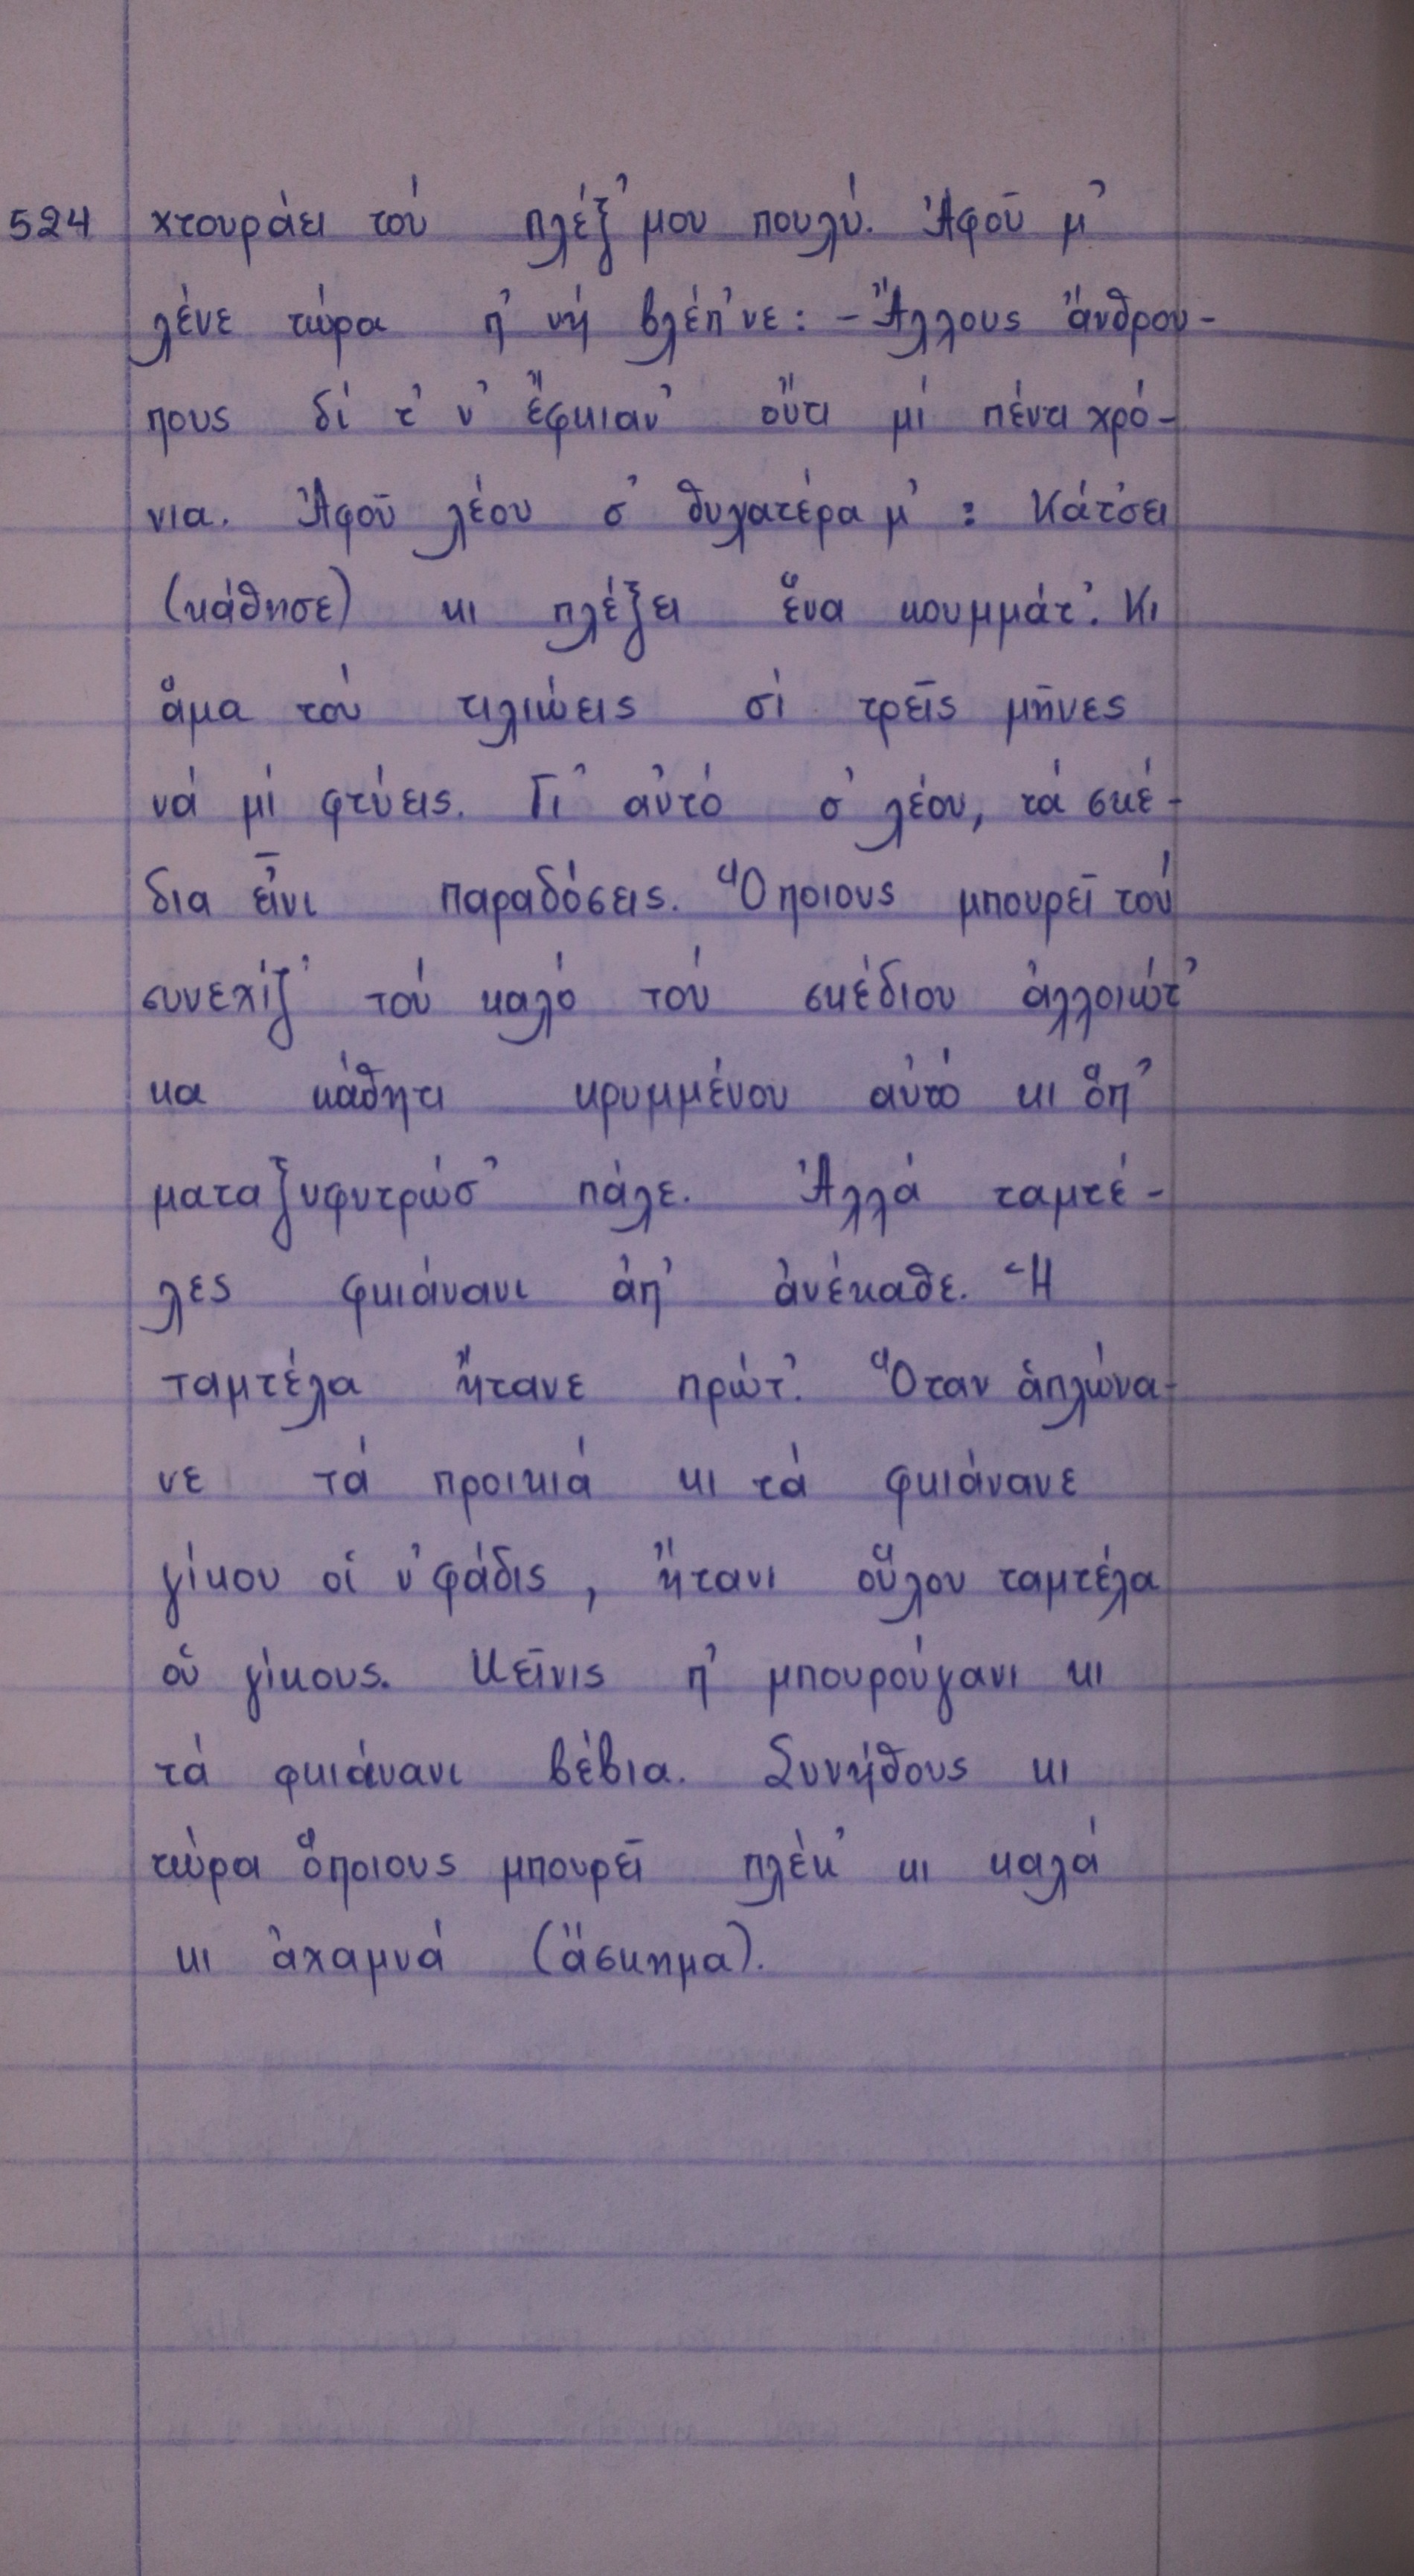 524 χτουράει τού πλέξ' μου πουλύ. Ἀφοῦ μ'
λένε τώρα π' νή βλέπ'νε: - Ἄλλους ἄνθρου-
πους δί τ' ν' ἔφκιαν' οὔτι μί πέντι χρό-
νια. Ἀφοῦ λέου σ' θυγατέρα μ' : Κάτσει
(κάθησε) κι πλέξει ἕνα κουμμάτ'. Κι
ἅμα τού τιλιώεις σί τρεῖς μῆνες
νά μί φτύεις. Γι' αὐτό σ' λέου, τά σκέ-
δια εἶνι παραδόσεις. Ὅποιους μπουρεῖ τού
συνεχίζ' τού καλό τού σκέδιου ἀλλοιώτ'
κα κάθητι κρυμμένου αὐτό κι ὅπ'
ματαξυφυτρώσ' πάλε. Ἀλλά ταμτέ-
λες φκιάνανι ἀπ' ἀνέκαθε. Ἡ
ταμτέλα ἤτανε πρώτ'. Ὅταν ἁπλώνα-
νε τά προικιά κι τά φκιάνανε
γίκου οἱ ν'φάδις, ἤτανι οὕλου ταμτέλα
οὑ γίκους. Κεῖνις π' μπουρούγανι κι
τά φκιάνανι βέβια. Συνήθους κι
τώρα ὅποιους μπουρεῖ πλέκ' κι καλά
κι ἀχαμνά (ἄσκημα).